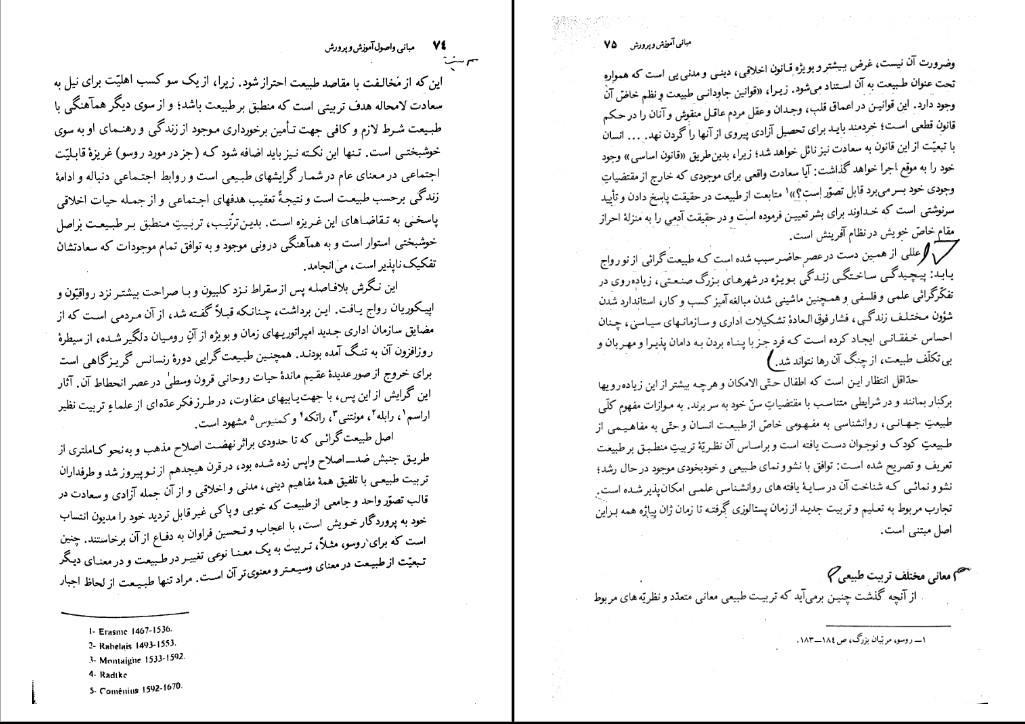 ۷۴ مبانی و اصول آموزش و پرورش
این که از مخالفت با مقاصد طبیعت احتراز شود. زیرا، از یک سو کسب اهلیّت برای نیل به
سعادت لامحاله هدف تربیتی است که منطبق بر طبیعت باشد؛ و از سوی دیگر هماهنگی با
طبیعت شرط لازم و کافی جهت تأمین برخورداری موجود از زندگی و رهنمای او به سوی
خوشبختی است. تنها این نکته نیز باید اضافه شود که (جز در مورد روسو) غریزهٔ قابلیّت
اجتماعی در معنای عام در شمار گرایشهای طبیعی است و روابط اجتماعی دنباله و ادامهٔ
زندگی برحسب طبیعت است و نتیجهٔ تعقیب هدفهای اجتماعی و از جمله حیات اخلاقی
پاسخی به تقاضاهای این غریزه است. بدین‌ترتّیب، تربیتِ منطبق بر طبیعت بر اصل
خوشبختی استوار است و به هماهنگی درونی موجود و به توافق تمام موجودات که سعادتشان
تفکیک ناپذیر است، می‌انجامد.
این نگرش بلافاصله پس از سقراط نزد کلبیون و با صراحت بیشتر نزد رواقیّون و
اپیکوریان رواج یافت. این برداشت، چنانکه قبلاً گفته شد، از آن مردمی است که از
مضایق سازمان اداری جدید امپراتوریهای زمان و بویژه از آنِ رومیان دلگیر شده، از سیطرهٔ
روزافزون آن به تنگ آمده بودند. همچنین طبیعت‌گرایی دورهٔ رنسانس گریزگاهی است
برای خروج از صور عدیدهٔ عقیم ماندهٔ حیات روحانی قرون وسطیٰ در عصر انحطاط آن. آثار
این گرایش از این پس، با جهت‌یابیهای متفاوت، در طرز فکر عدّه‌ای از علماءِ تربیت نظیر
اراسم۱، رابله۲، مونتنی۳، راتکه۴ و کمنیوس۵ مشهود است.
اصل طبیعت گرائی که تا حدودی براثر نهضت اصلاح مذهب و به نحو کاملتری از
طریق جنبش ضد ـ اصلاح واپس زده شده بود، در قرن هیجدهم از نو پیروز شد و طرفداران
تربیت طبیعی با تلفیق همهٔ مفاهیم دینی، مدنی و اخلاقی و از آن جمله آزادی و سعادت در
قالب تصوّر واحد و جامعی از طبیعت که خوبی و پاکی غیرقابل تردید خود را مدیون انتساب
خود به پروردگار خویش است، با اعجاب و تحسین فراوان به دفاع از آن برخاستند. چنین
است که برای روسو، مثلاً، تربیت به یک معنا نوعی تغییر در طبیعت و در معنای دیگر
تبعیّت از طبیعت در معنای وسیعتر و معنوی‌تر آن است. مراد تنها طبیعت از لحاظ اجبار
1- Erasme 1467-1536.
2- Rabelais 1493-1553.
3- Montaigne 1533-1592.
4- Radtke
5- Coménius 1592-1670.
مبانی آموزش و پرورش ۷۵
وضرورت آن نیست، غرض بیشتر و بویژه قانون اخلاقی، دینی و مدنی یی است که همواره
تحت عنوان طبیعت به آن استناد می‌شود. زیرا، «قوانین جاودانی طبیعت و نظم خاصّ آن
وجود دارد. این قوانین در اعماق قلب، وجدان و عقل مردم عاقل منقوش و آنان را در حکم
قانون قطعی است؛ خردمند باید برای تحصیل آزادی پیروی از آنها را گردن نهد. ... انسان
با تبعیّت از این قانون به سعادت نیز نائل خواهد شد؛ زیرا، بدین‌طریق «قانون اساسی» وجود
خود را به موقع اجرا خواهد گذاشت: آیا سعادت واقعی برای موجودی که خارج از مقتضیاتِ
وجودی خود بسر می‌برد قابل تصوّر است؟»۱ متابعت از طبیعت در حقیقت پاسخ دادن و تأیید
سرنوشتی است که خداوند برای بشر تعیین فرموده است و در حقیقت آدمی را به منزلهٔ احراز
مقام خاصّ خویش در نظام آفرینش است.
عللی از همین دست در عصر حاضر سبب شده است که طبیعت گرائی از نو رواج
یابد: پیچیدگی ساختگی زندگی بویژه در شهرهای بزرگ صنعتی، زیاده‌روی در
تفکّرگرائی علمی و فلسفی و همچنین ماشینی شدن مبالغه‌آمیز کسب و کار، استاندارد شدن
شؤون مختلف زندگی، فشار فوق العادهٔ تشکیلات اداری و سازمانهای سیاسی، چنان
احساس خفقانی ایجاد کرده است که فرد جز با پناه بردن به دامان پذیرا و مهربان و
بی‌تکلّف طبیعت، از چنگ آن رها نتواند شد.
حدّاقل انتظار این است که اطفال حتّی الامکان و هرچه بیشتر از این زیاده رویها
برکنار بمانند و در شرایطی متناسب با مقتضیاتِ سنّ خود به سر برند. به موازات مفهوم کلّی
طبیعتِ جهانی، روانشناسی به مفهومی خاصّ از طبیعت انسان و حتّی به مفاهیمی از
طبیعتِ کودک و نوجوان دست یافته است و براساس آن نظریّهٔ تربیتِ منطبق بر طبیعت
تعریف و تصریح شده است: توافق با نشو و نمای طبیعی و خودبخودی موجود در حال رشد؛
نشو و نمائی که شناخت آن در سایهٔ یافته های روانشناسی علمی امکان‌پذیر شده است.
تجارب مربوط به تعلیم و تربیت جدید از زمان پستالوزی گرفته تا زمان ژان پیاژه همه براین
اصل مبتنی است.
معانی مختلف تربیت طبیعی
از آنچه گذشت چنین برمی‌آید که تربیت طبیعی معانی متعدّد و نظریّه های مربوط
۱ـ روسو، مربّیان بزرگ، ص ۱۸۴ـ۱۸۳.